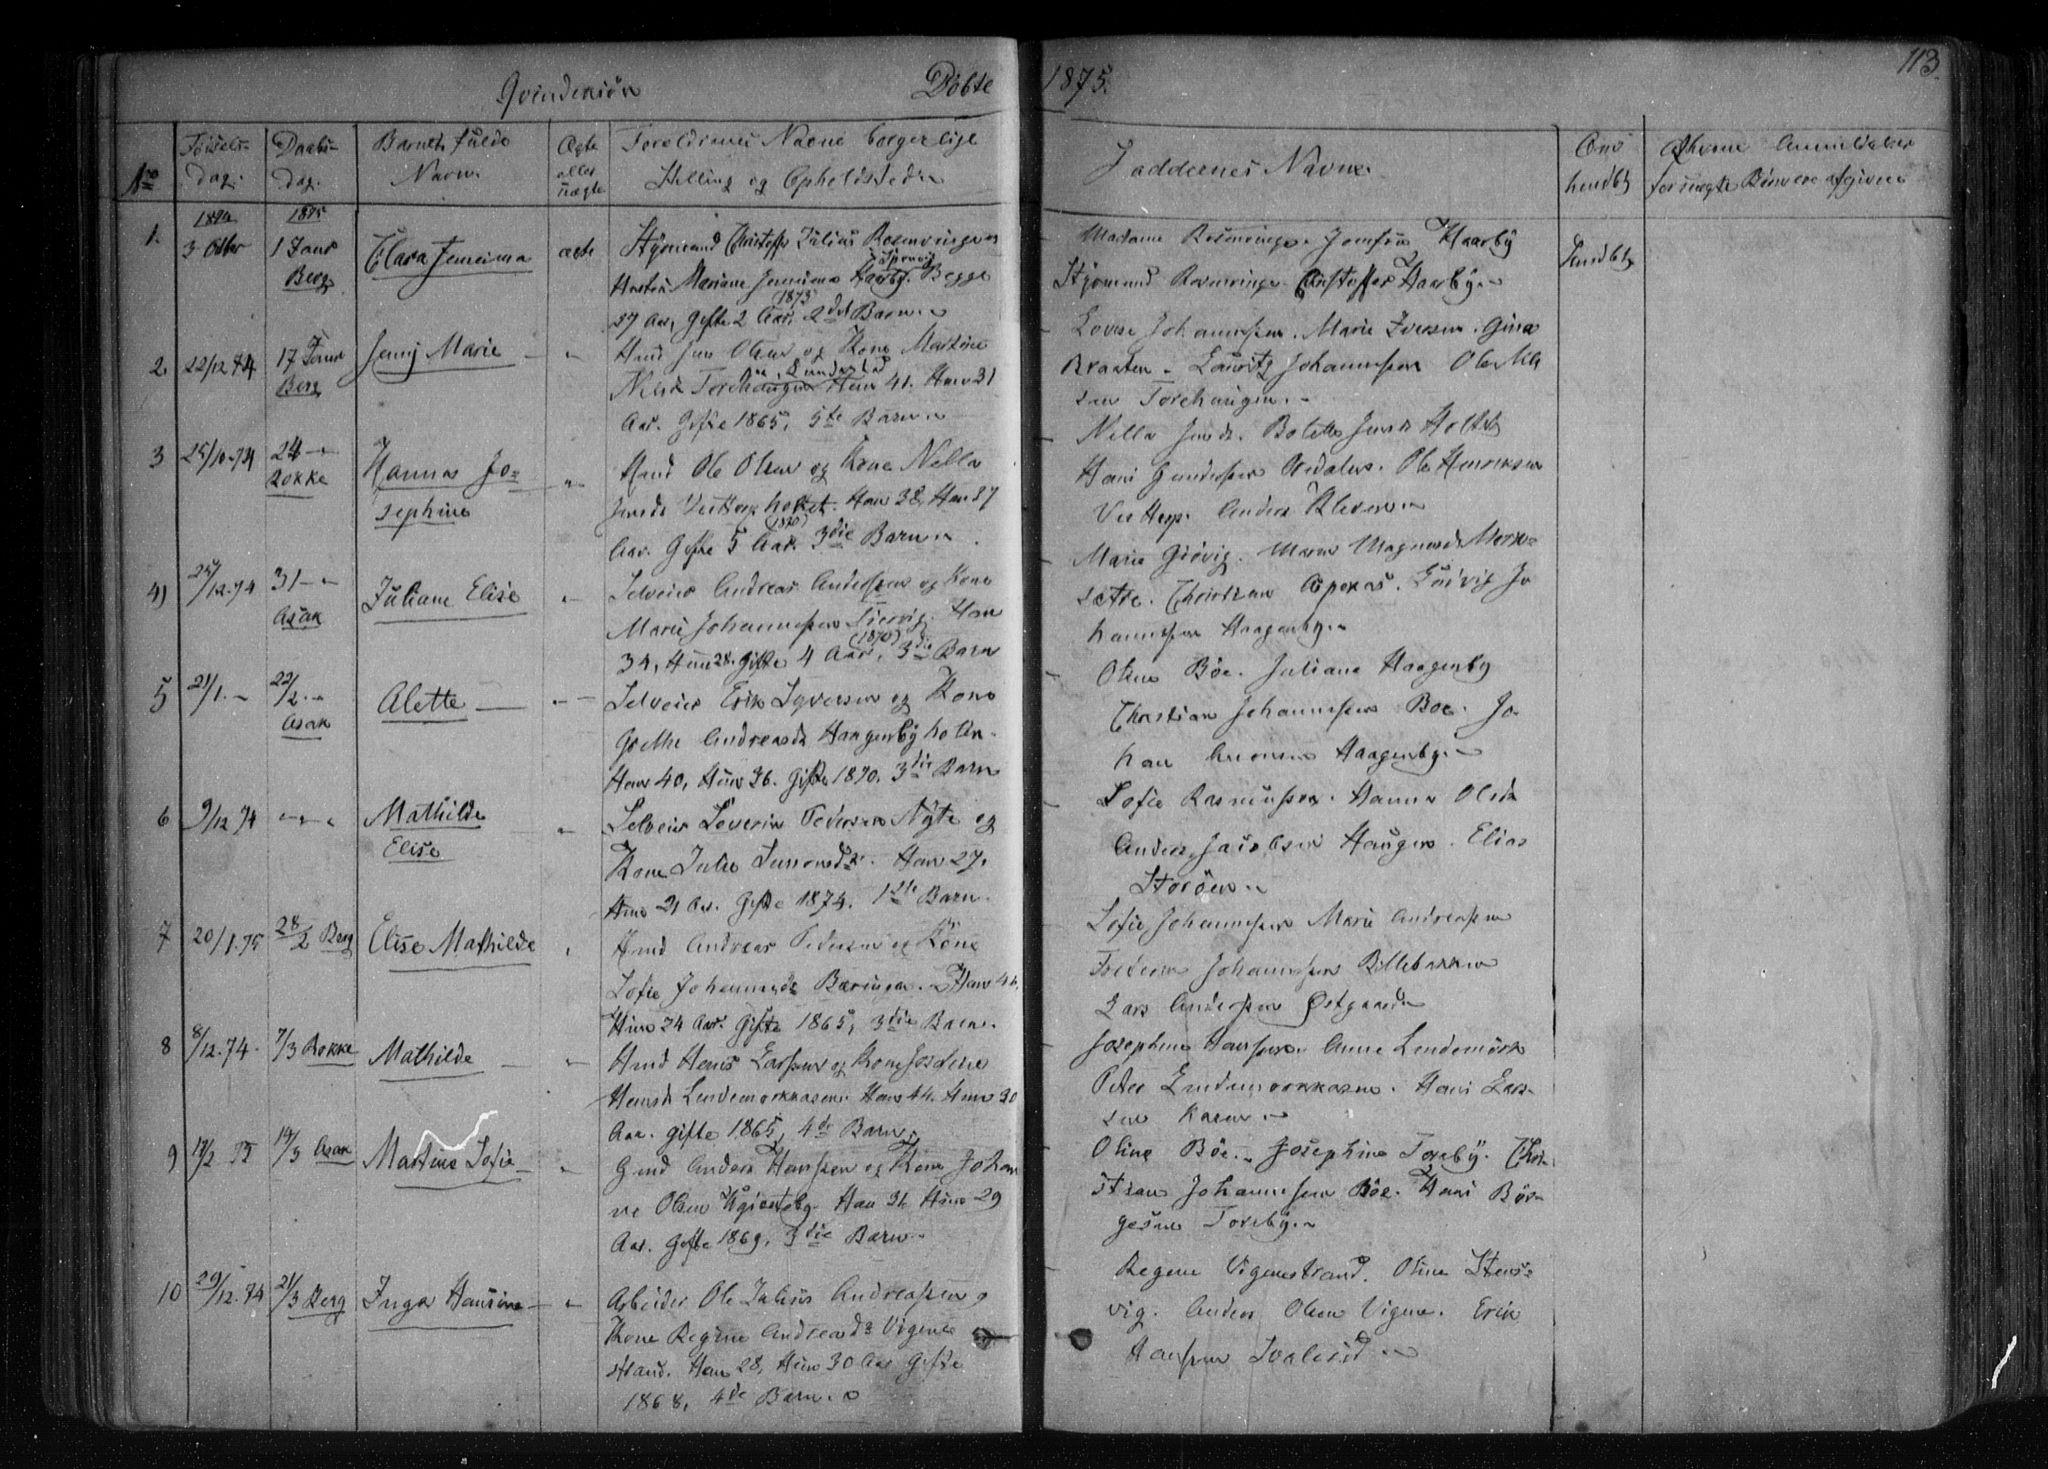 Qvindekiøn Døbte
1875.
113.
No
Fødsels-
dag.
Daabs-
dag.
Barnets fulde
Navn.
Ægte
eller
uægte
Foreldrenes Navne borgerlige
Stilling og Opholdsted
Faddernes Navne.
1.
1874
3 Octbr
1875
1 Janr
Berg
Clara Jemima
ægte
Styrmand Christoffer Julius Rosenvinge og
Hustru Mariane Jemima Haarby. Begge
27 Aar, Gifte 2 Aar, 2det Barn.
(1873)
Madame Rosenvinge. Jomfru Haarby
Styrmand Rosenvinge. Christoffer Haarby.
2.
22/12 74
17 Janr
Berg
Jenny Marie
Hmd Jens Olsen og Kone Martine
Nilsd Torchaugen Han 41. Hun 31
Aar. Gifte 1865, 5te Barn.
Lovise Johannessen. Marie Iversen. Gina
Braaten. Lauritz Johannessen Ole Nil
sen Torehaugen.
3
25/10-74
24
Rokke
Hanna Jo-
sephine
Hmd Ole Olsen og Kone Nella
Jensd Vestthorpholtet. Han 38, Hun 37
Aar. Gifte 5 Aar. 3die Barn.
(1870)
Nella Jensd. Bolette Jensd Holtet
Hans Gundersen Ole Henriksen
4)
25/12.74
31
Asak
Juliane Elise
Selveier Andreas Andersen og Kone
Marie Johannessen. Han
34, Hun 28. Gifte 4 Aar, 3die Barn
(1870)
sætre. Christian Aspekas. Ludvig Jo
hannessen Haagenby.
5
21/1.
22/2.
Asak
Alette
Selveier Erik Syversen og Kone
Grethe Andreasd Haagenbyholen.
Han 40, Hun 36. Gifte 1870. 3die Barn
Oline Böe. Juliane Haagenby
Christian Johannessen Boe. Jo-
han Haagenby.
6
9/12 74
Mathilde
Elise
Selveier Severin Pedersen Nyte og
Kone Julie Simonsd. Han 27.
Hun 21 Aar. Gifte 1874. 1ste Barn.
Sofie Rasmussen. Hanna Olsd
Anders Jacobsen Haugen. Elias
Storöen.
7
20/1.75
28/2 Berg
Elise Mathilde
Hmd Andreas Pedersen og Kone
Sofie Johannesd Bæringen. Han 4
Hun 34 Aar. Gifte 1865, 3die Barn.
Sofie Johannessen Marie Andreassen
Johannessen Billebakken
Lars Andersen Østgaard
8
8/12.74.
7/3 Rokke
Mathilde
Hmd Hans Larssen og Kone Josefine
Hansd Lundemorkkasen. Han 44. Hun 30
Aar. gifte 1865, 4de Barn.
Josephine Hanssen. Anne Lundemörk
Peter Lundemorkkasen. Hans Lars-
sen Kasen.
9
14/3 Asak
Martine Sofie
Gmd Anders Hanssen og Kone Johan
ne Olsen. Han 31 Hun 29
Aar. Gifte 1869, 3die Barn.
Oline Böe. Josephine Toreby. Chri-
stian Johannessen Böe. Hans Bör-
gesen Toreby.
10
29/12.74
21/3 Berg
Inga Hansine
Arbeider Ole Julius Andreassen og
Kone Regine Andreasd Vigene
strand. Han 28, Hun 30 Aar Gifte
1868, 4de Barn.
Regene Vigenestrand. Oline Stens-
vig. Anders Olsen Vigene. Erik
Hanssen